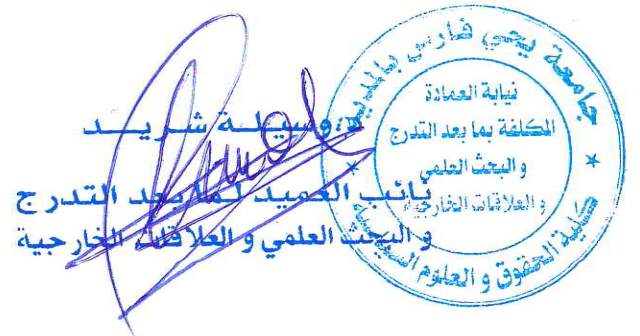 جامعة يحيى فارس بالمدية
نيابة العمادة
المكلفة بما بعد التدرج
و البحث العلمي
و العلاقات الخارجية
كلية الحقوق و العلوم السياسية
د.وسيلة شريد
نائب العميد لما بعد التدرج
و البحث العلمي و العلاقات الخارجية